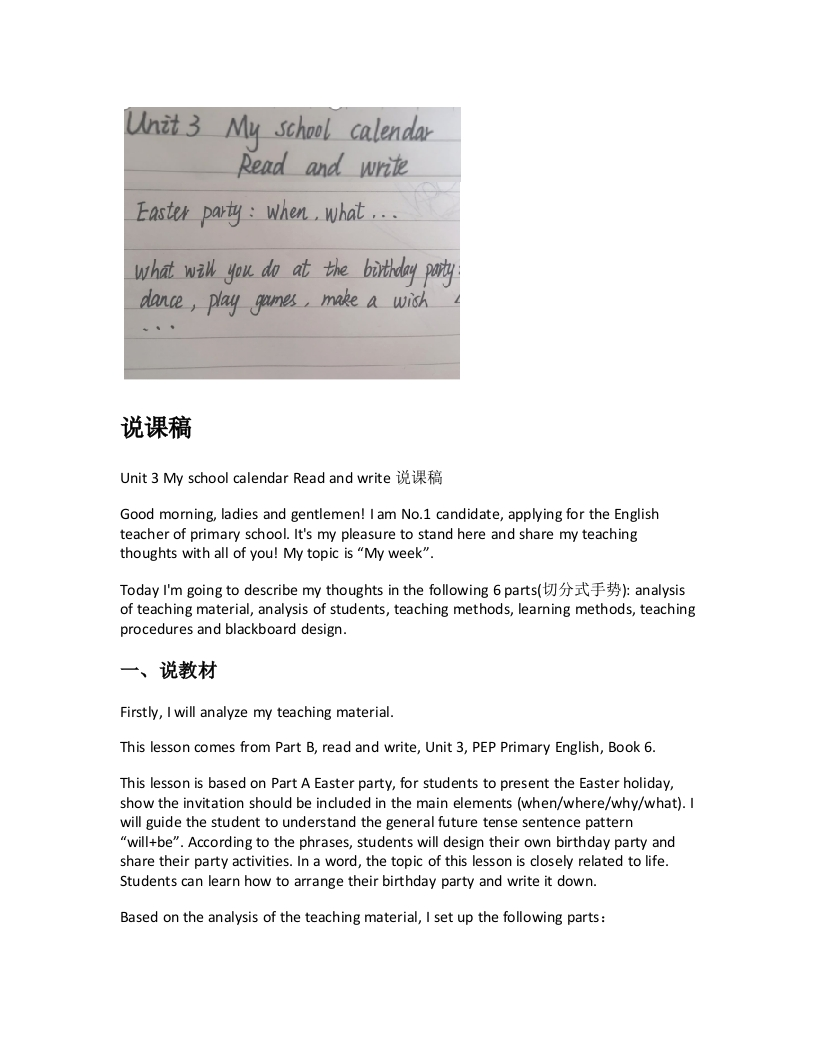 Unit 3 My school calendar
Read and write
Easter party: when, what ...
What will you do at the birthday party
dance, play games, make a wish
...
说课稿
Unit 3 My school calendar Read and write 说课稿
Good morning, ladies and gentlemen! I am No.1 candidate, applying for the English
teacher of primary school. It's my pleasure to stand here and share my teaching
thoughts with all of you! My topic is “My week”.
Today I'm going to describe my thoughts in the following 6 parts(切分式手势): analysis
of teaching material, analysis of students, teaching methods, learning methods, teaching
procedures and blackboard design.
一、说教材
Firstly, I will analyze my teaching material.
This lesson comes from Part B, read and write, Unit 3, PEP Primary English, Book 6.
This lesson is based on Part A Easter party, for students to present the Easter holiday,
show the invitation should be included in the main elements (when/where/why/what). I
will guide the student to understand the general future tense sentence pattern
“will+be”. According to the phrases, students will design their own birthday party and
share their party activities. In a word, the topic of this lesson is closely related to life.
Students can learn how to arrange their birthday party and write it down.
Based on the analysis of the teaching material, I set up the following parts：